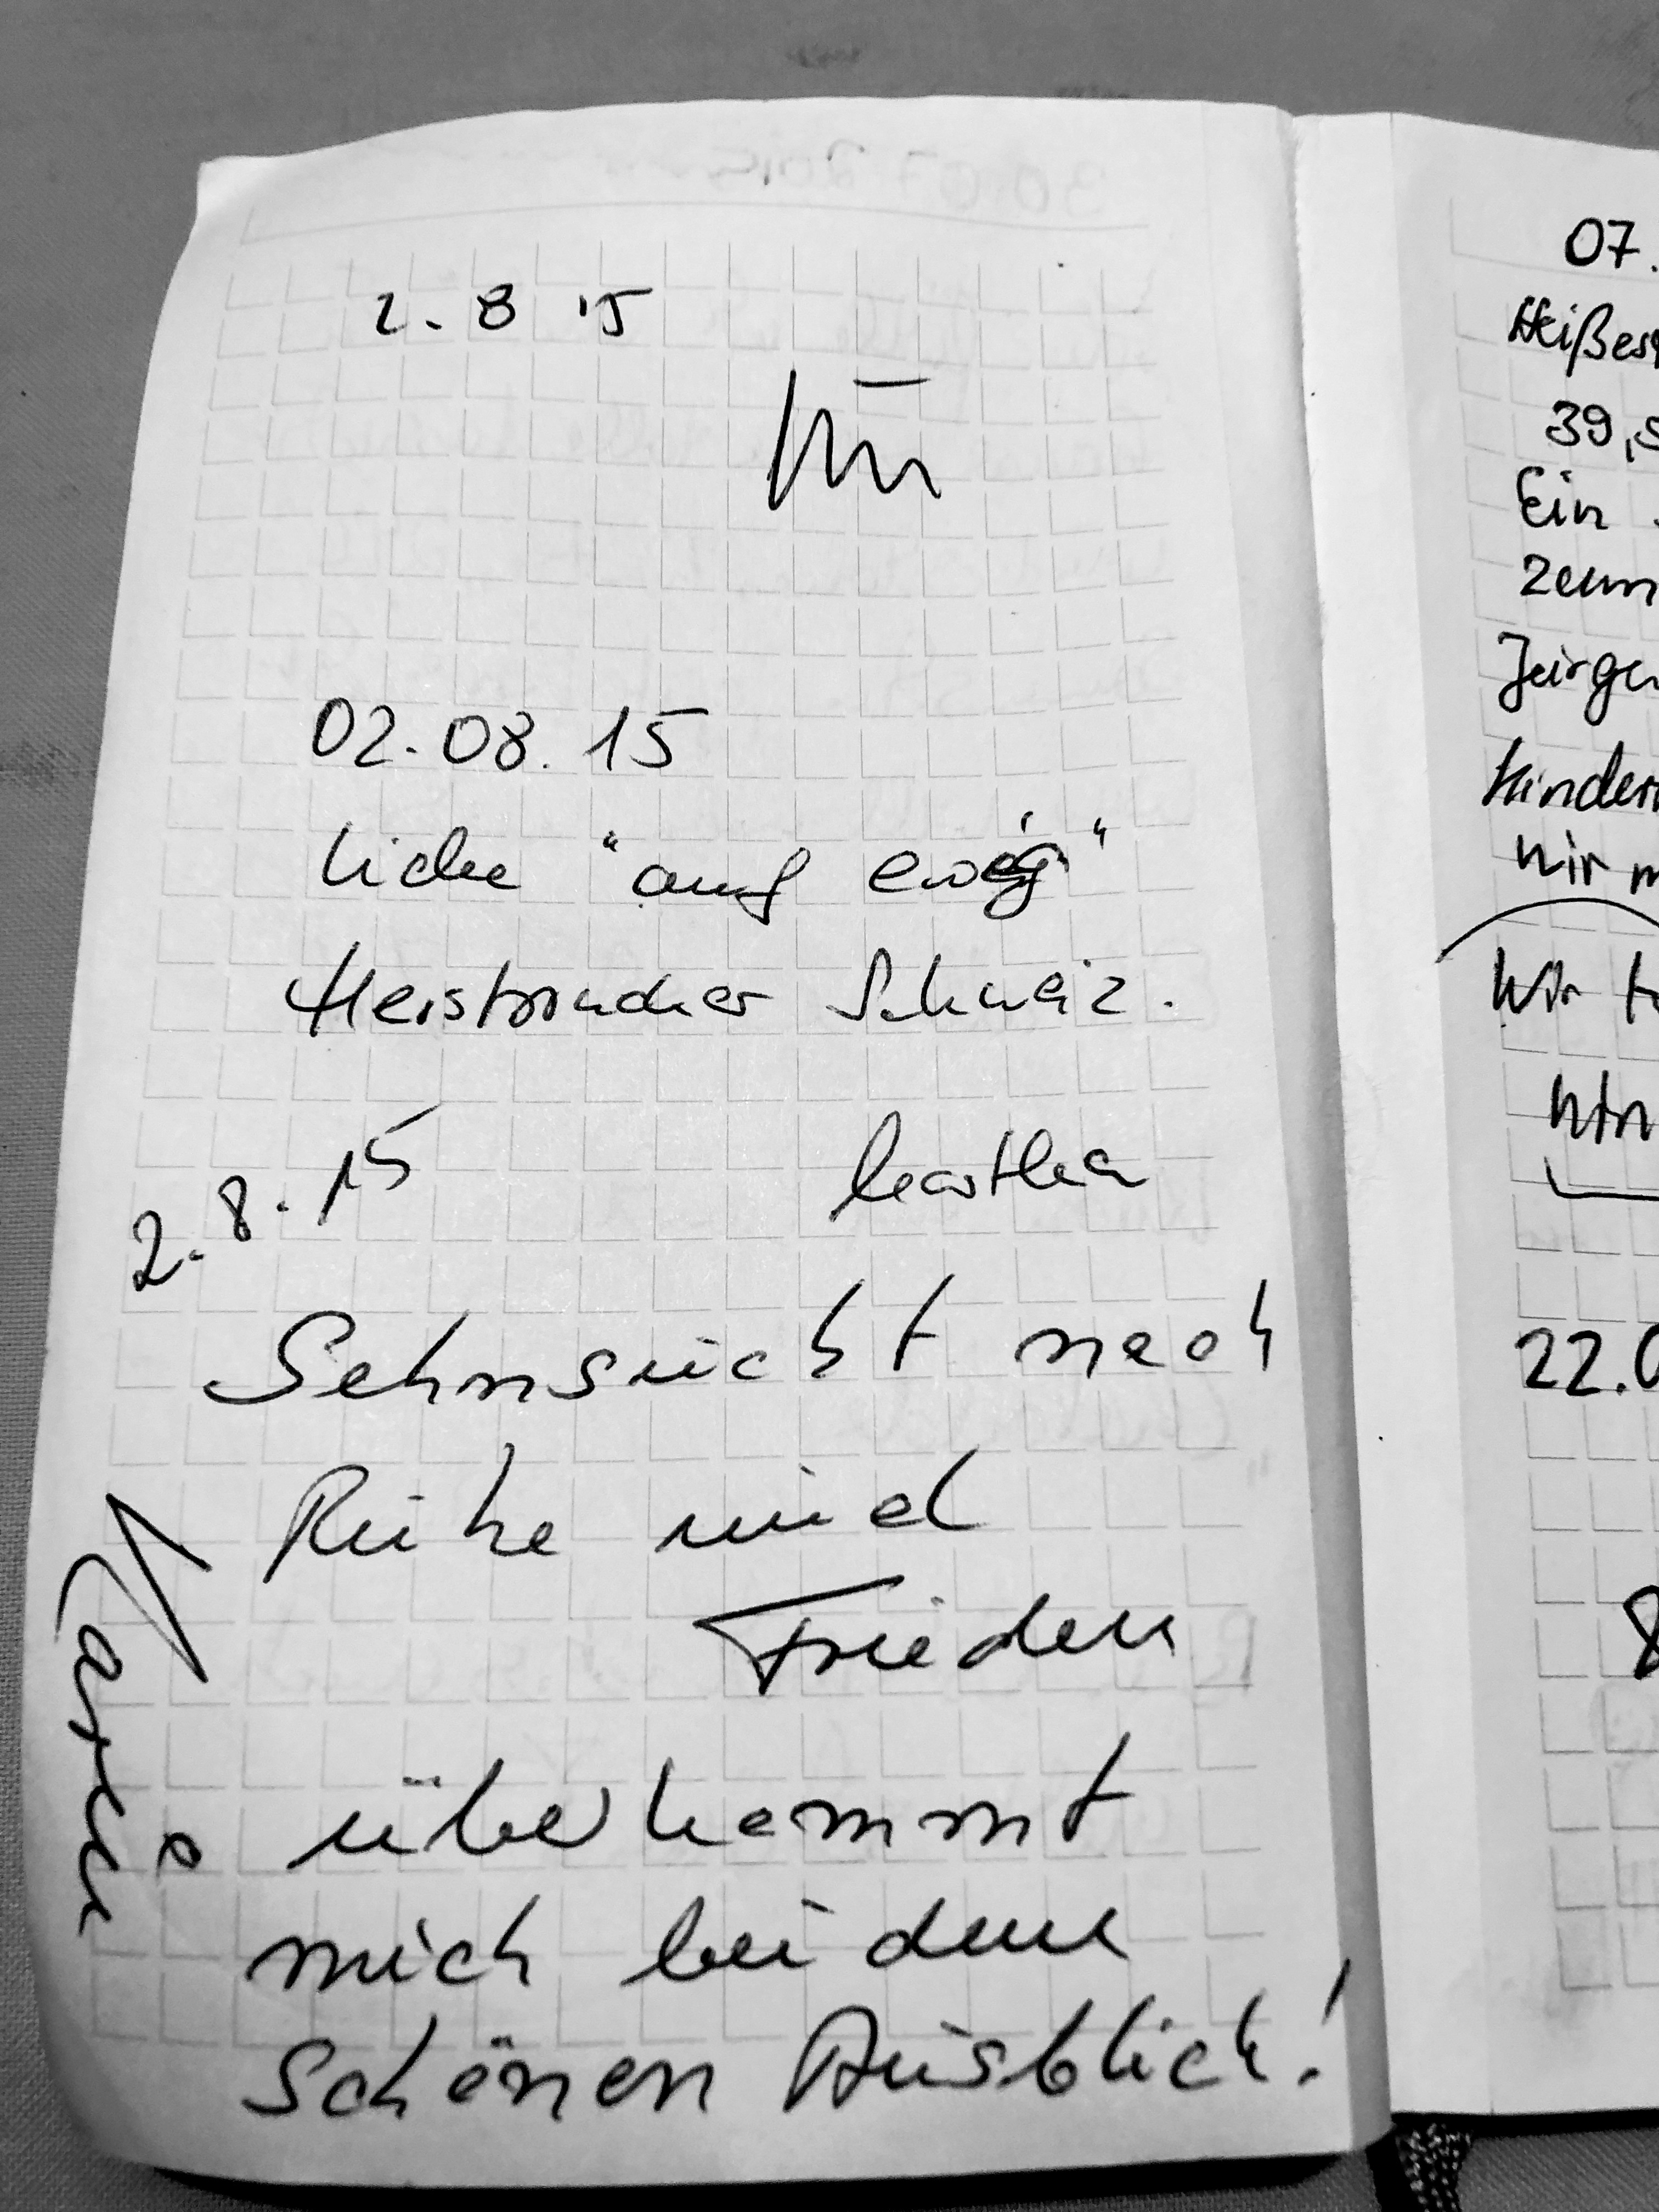 2.8 15
02.08.15
Liebe "auf ewig"
Heisterbacher Schweiz.
2.8.15
Sehnsucht nach
Ruhe und
Frieden
überkommt
mich bei dem
schönen Ausblick!
Karin
07.
Heißes
39,5
Ein
Jürgen
Kinder
wir m
Wir
22.0
8